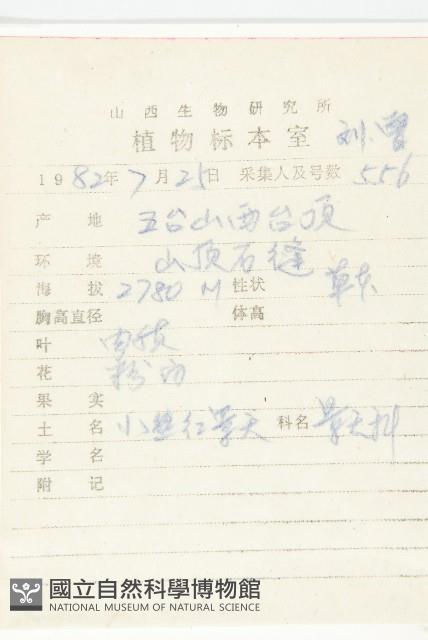 山西生物研究所
植物标本室 刘、曾
1982年7月25日 采集人及号数 556
产地 五台山西台顶
环境 山顶石缝
海拔 2780 M 性状 草本
胸高直径 体高
叶 肉质
花 粉
果实
土名 小丛红景天 科名 景天科
学名
附记
國立自然科學博物館
NATIONAL MUSEUM OF NATURAL SCIENCE